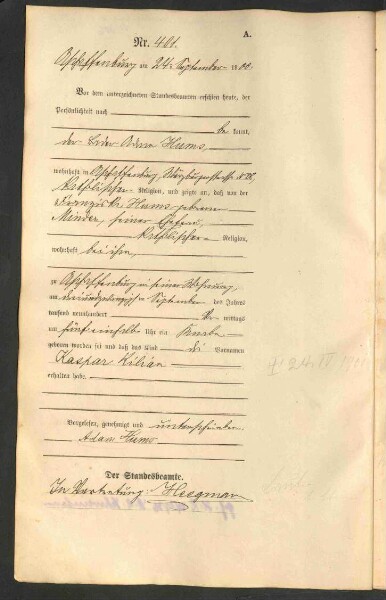 A.
Nr. 401.
Aschaffenburg am 24. September 1900.
Vor dem unterzeichneten Standesbeamten erschien heute, der
Persönlichkeit nach
be kannt,
der Adam Hums,
wohnhaft in Aschaffenburg,
katholischer Religion, und zeigte an, daß von der
Franziska Hums geborene
Minder, seiner Ehefrau,
katholischer Religion,
wohnhaft bei ihm,
zu Aschaffenburg in seiner Wohnung,
am dreiundzwanzigsten September des Jahres
tausend neunhundert Vor mittags
um fünfeinhalb Uhr ein Knabe
geboren worden sei und daß das Kind die Vornamen
Kaspar Kilian
erhalten habe.
Vorgelesen, genehmigt und unterschrieben
Adam Hums
Der Standesbeamte.
In Vertretung: